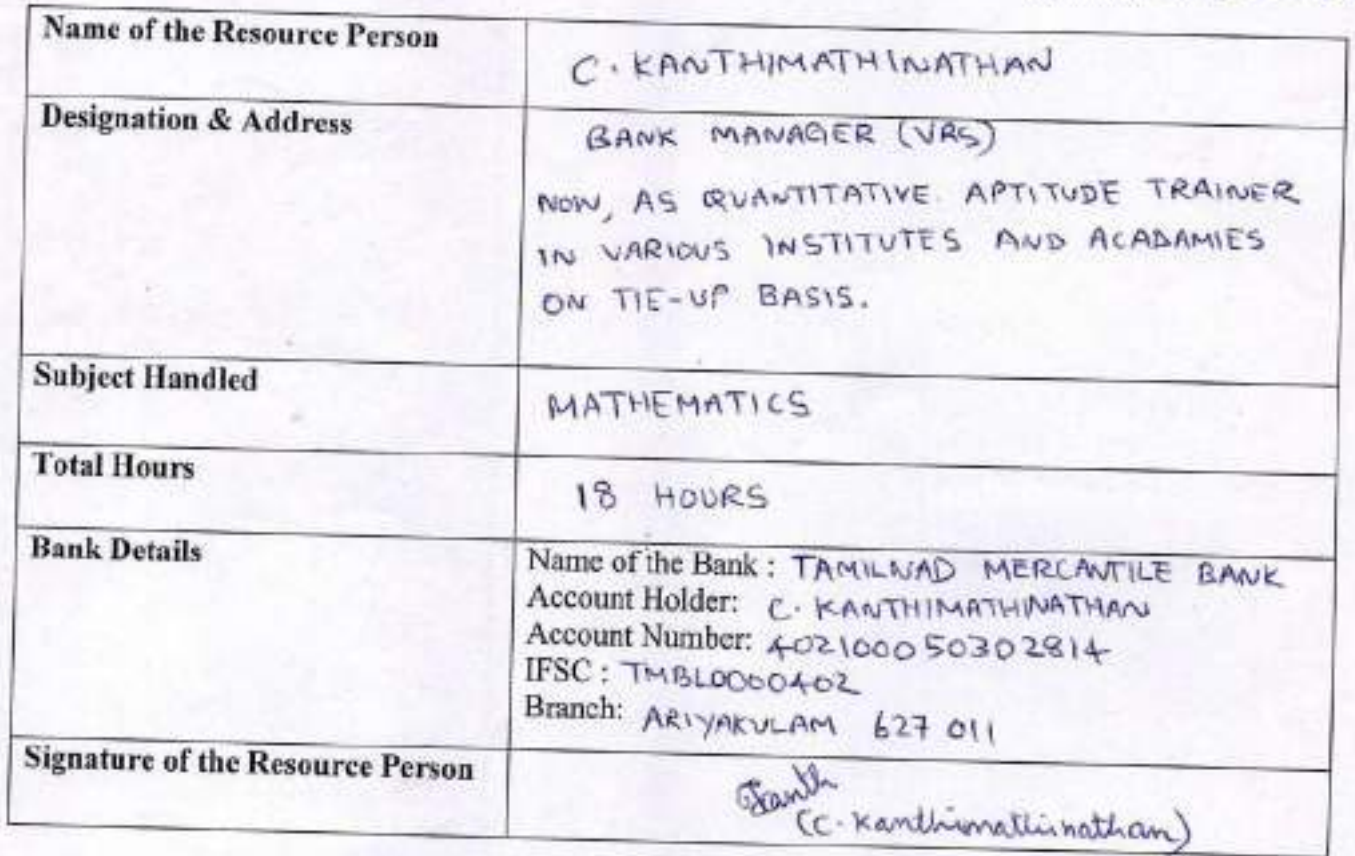 Name of the Resource Person
C. KANTHIMATHINATHAN
Designation & Address
BANK MANAGER (VRS)
NOW, AS QUANTITATIVE APTITUDE TRAINER
IN VARIOUS INSTITUTES AND ACADAMIES
ON TIE-UP BASIS.
Subject Handled
MATHEMATICS
Total Hours
18 HOURS
Bank Details
Name of the Bank : TAMILNAD MERCANTILE BANK
Account Holder: C. KANTHIMATHINATHAN
Account Number: 402100050302814
IFSC : TMBL0000402
Branch: ARIYAKULAM 627 011
Signature of the Resource Person
Kanth
(C. Kanthimathinathan)